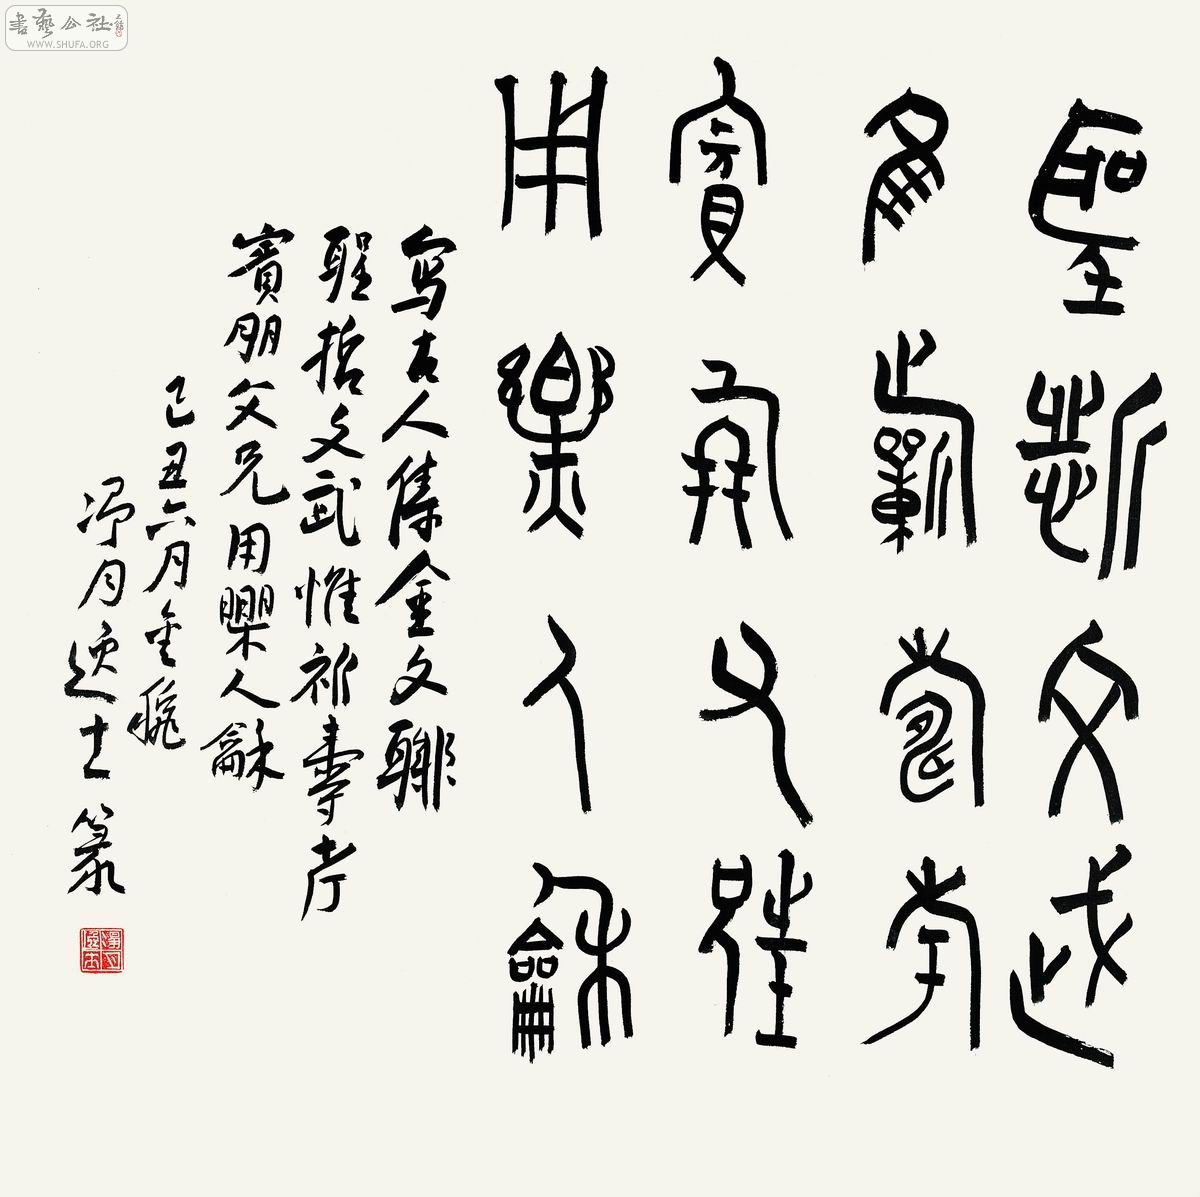 書藝公社
WWW.SHUFA.ORG
聖哲文武
隹祈壽孝
賓朋父兄
用樂人龢
寫古人集金文聯
聖哲文武惟祈壽孝
賓朋父兄用樂人龢
己丑六月金穐
净月逸士篆